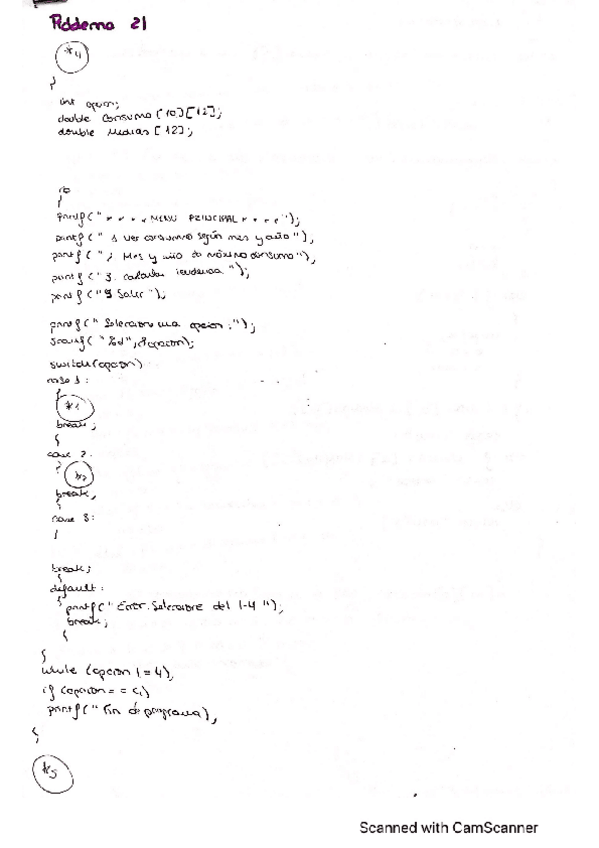 Problema 21
*4
}
int opcion;
double Consumo [10][12];
double Medias [12];
do
{
printf(" * * * * MENU PRINCIPAL * * * * ");
printf(" 1 Ver consumo según mes y año ");
printf(" 2 Mes y año de máximo consumo ");
printf(" 3. calcular tendencia ");
printf(" 4 Salir ");
printf(" Selecciona una opcion : ");
scanf( " %d", &opcion);
switch(opcion)
case 1 :
{
*1
break;
{
case 2 .
{
*2
break;
{
case 3:
{
break;
{
default :
{
printf(" Error. Seleccione del 1-4 ");
break;
{
}
while (opcion != 4);
if (opcion = = 4)
printf(" Fin de programa);
}
*5
Scanned with CamScanner